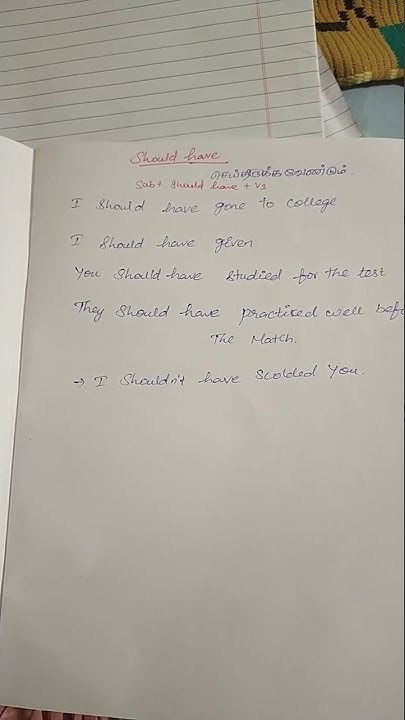 Should have
செய்திருக்க வேண்டும்.
Sub + Should have + V3
I Should have gone to college
I Should have given
You Should have studied for the test
They Should have practiced well befo
The Match.
→ I Shouldn't have Scolded You.